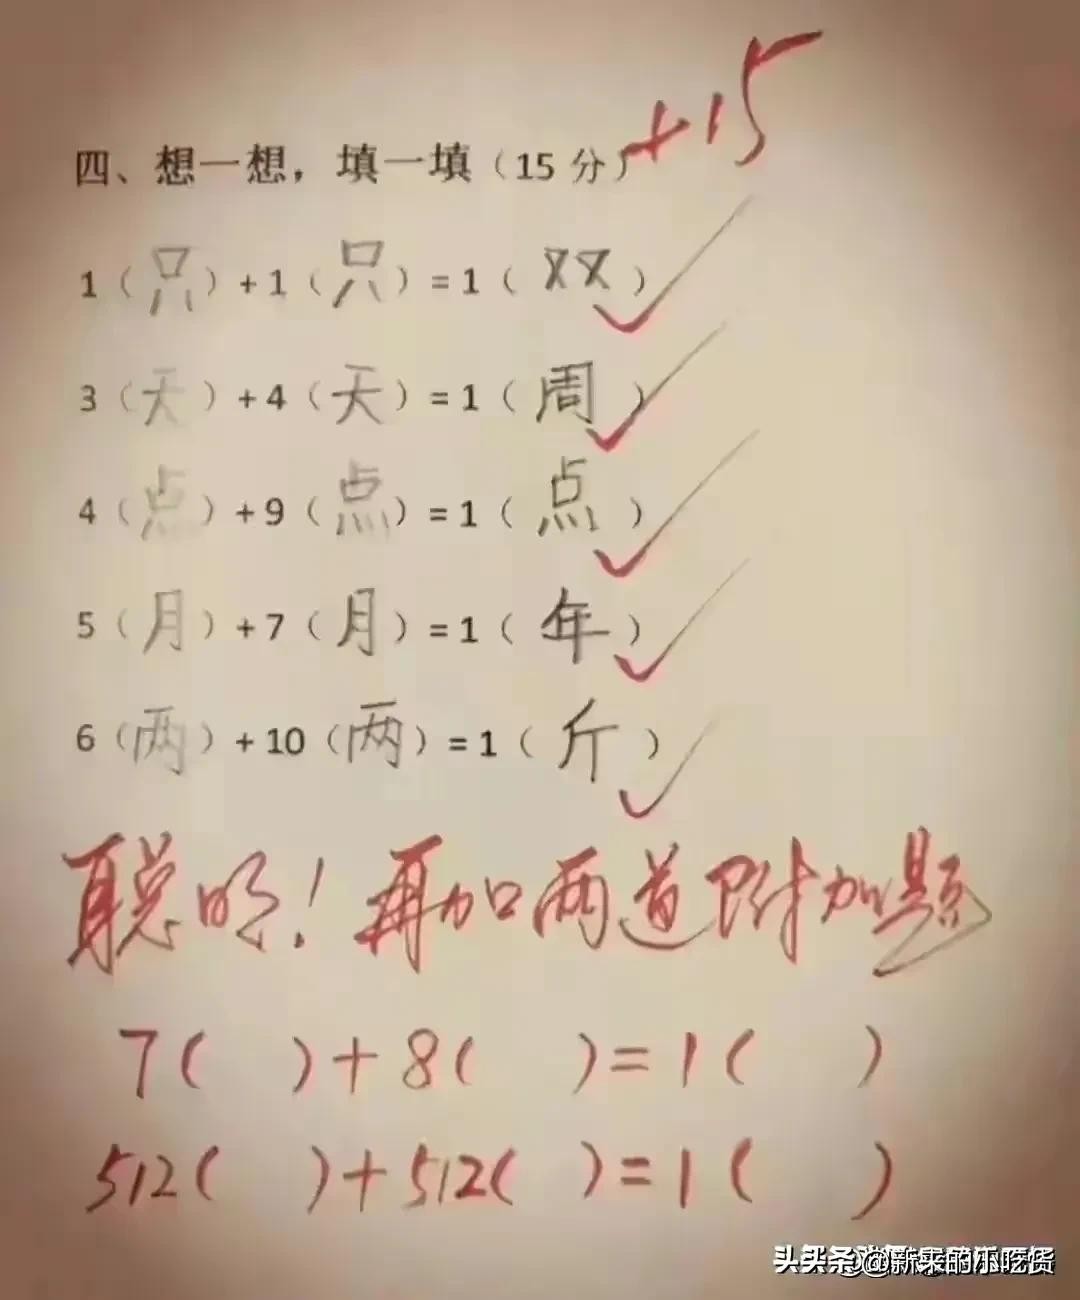 四、想一想，填一填（15 分） +15
1（只）+1（只）=1（双）
3（天）+4（天）=1（周）
4（点）+9（点）=1（点）
5（月）+7（月）=1（年）
6（两）+10（两）=1（斤）
聪明！再加两道附加题
7(    )+8(    )=1(    )
512(    )+512(    )=1(    )
头条 @新来的小吃货